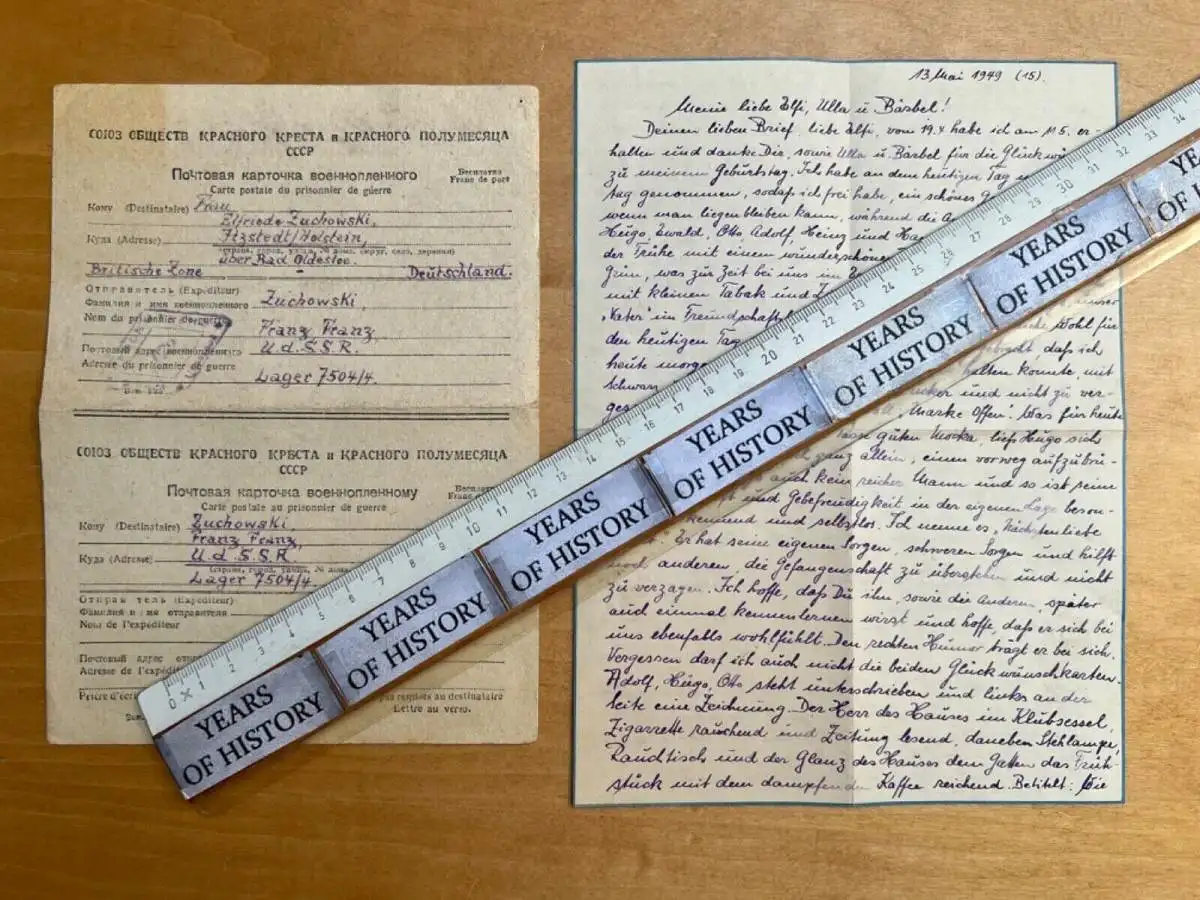 СОЮЗ ОБЩЕСТВ КРАСНОГО КРЕСТА и КРАСНОГО ПОЛУМЕСЯЦА
СССР
Почтовая карточка военнопленного
Бесплатно
Carte postale du prisonnier de guerre
Franc de port
Кому (Destinataire) Frau
Elfriede Zuchowski,
Куда (Adresse) Itzstedt/Holstein,
über Bad Oldesloe.
Britische Zone - Deutschland.
Отправитель (Expéditeur)
Фамилия и имя военнопленного Zuchowski,
Nom du prisonnier de guerre
Franz Franz
Почтовый адрес военнопленного U.d.S.S.R.
Adresse du prisonnier de guerre
Lager 7504/4.
СОЮЗ ОБЩЕСТВ КРАСНОГО КРЕСТА и КРАСНОГО ПОЛУМЕСЯЦА
СССР
Почтовая карточка военнопленному
Carte postale au prisonnier de guerre
Кому (Destinataire) Zuchowski,
Franz Franz,
Куда (Adresse) U.d.S.S.R
Lager 7504/4
Отправитель (Expéditeur)
Фамилия и имя отправителя
Nom de l'expéditeur
Почтовый адрес
Adresse de
Prière
au destinataire
Lettre au verso.
13. Mai 1949 (15).
Meine liebe Elfi, Ulla u Bärbel!
Deinen lieben Brief, liebe Elfi, vom 19.4 habe ich am 11.5. er-
halten und danke Dir, sowie Ulla u. Bärbel für die
zu meinem Geburtstag. Ich habe an dem heutigen Tag
tag genommen, sodaß ich frei habe, ein schönes
wenn man liegenbleiben kann, während die
Hugo, Ewald, Otto Adolf, Heinz und
der Frühe mit einem
Grün, was zur Zeit bei uns im
mit kleinen Tabak und
"Vater" im
den heutigen Tag Wohl für
heute daß ich
Schwarz halten konnte, mit
und nicht zu ver-
"Marke Offen". Was für heute
guten Mocka, ließ Hugo sich
ganz allein, einen vorweg aufzubrü-
auch kein reicher Mann und so ist seine
und Gebefreudigkeit in der eigenen Lage beson-
und selbstlos. Ich nenne es, "Nächstenliebe
Er hat seine eigenen Sorgen, schweren Sorgen und hilft
noch anderen, die Gefangenschaft zu überstehen und nicht
zu verzagen. Ich hoffe, daß Du ihn, sowie die Anderen, später
auch einmal kennenlernen wirst und hoffe, daß er sich bei
uns ebenfalls wohlfühlt. Den rechten Humor trägt er bei sich.
Vergessen darf ich auch nicht die beiden Glückwunschkarten.
Adolf, Hugo, Otto steht unterschrieben und links an der
Seite eine Zeichnung. Der Herr des Hauses im Klubsessel,
Zigarrette rauchend und Zeitung lesend, daneben Stehlampe,
Rauchtisch und der Glanz des Hauses dem Gatten das Früh-
stück mit dem dampfenden Kaffee reichend. Betitelt: Wie
0 1 2 3 4 5 6 7 8 9 10 11 12 13 14 15 16 17 18 19 20 21 22 23 24 25 26 27 28 29 30 31 32 33 34
YEARS
OF HISTORY
YEARS
OF HISTORY
YEARS
OF HISTORY
YEARS
OF HISTORY
YEARS
OF HISTORY
YEARS
OF HISTORY
YE
OF